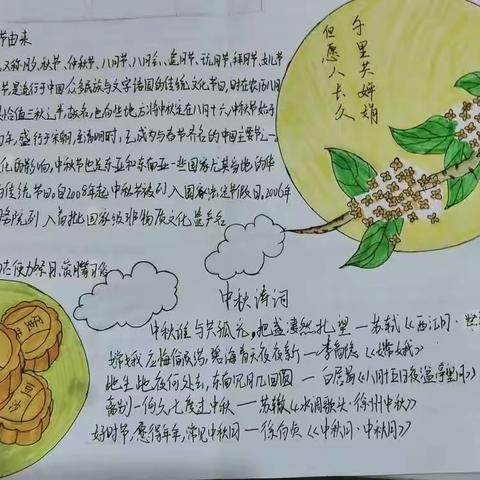 节由来
又称月夕、秋节、仲秋节、八月节、八月会、追月节、玩月节、拜月节、女儿节
节,是流行于中国众多民族与文字诸国的传统文化节日,时在农历八月
恰值三秋之半,故名,也有些地方将中秋定在八月十六,中秋节始于
年,盛行于宋朝,至明清时,已成为与春节齐名的中国主要节之一。
化的影响,中秋节也是东亚和东南亚一些国家尤其当地的华
传统节日。自2008年起中秋节被列入国家法定节假日。2006年
务院列入首批国家级非物质文化遗产名
但愿人长久
千里共婵娟
中秋诗词
中秋谁与共孤光,把盏凄然北望 — 苏轼《西江月·世
嫦娥应悔偷灵药,碧海青天夜夜新 — 李商隐《嫦娥》
此生此夜何处去,东南见月几回圆 — 白居易《八月十五日夜湓亭望月》
离别一何久,七度过中秋 — 苏辙《水调歌头·徐州中秋》
好时节,愿得年年,常见中秋月 — 徐有贞《中秋月·中秋月》